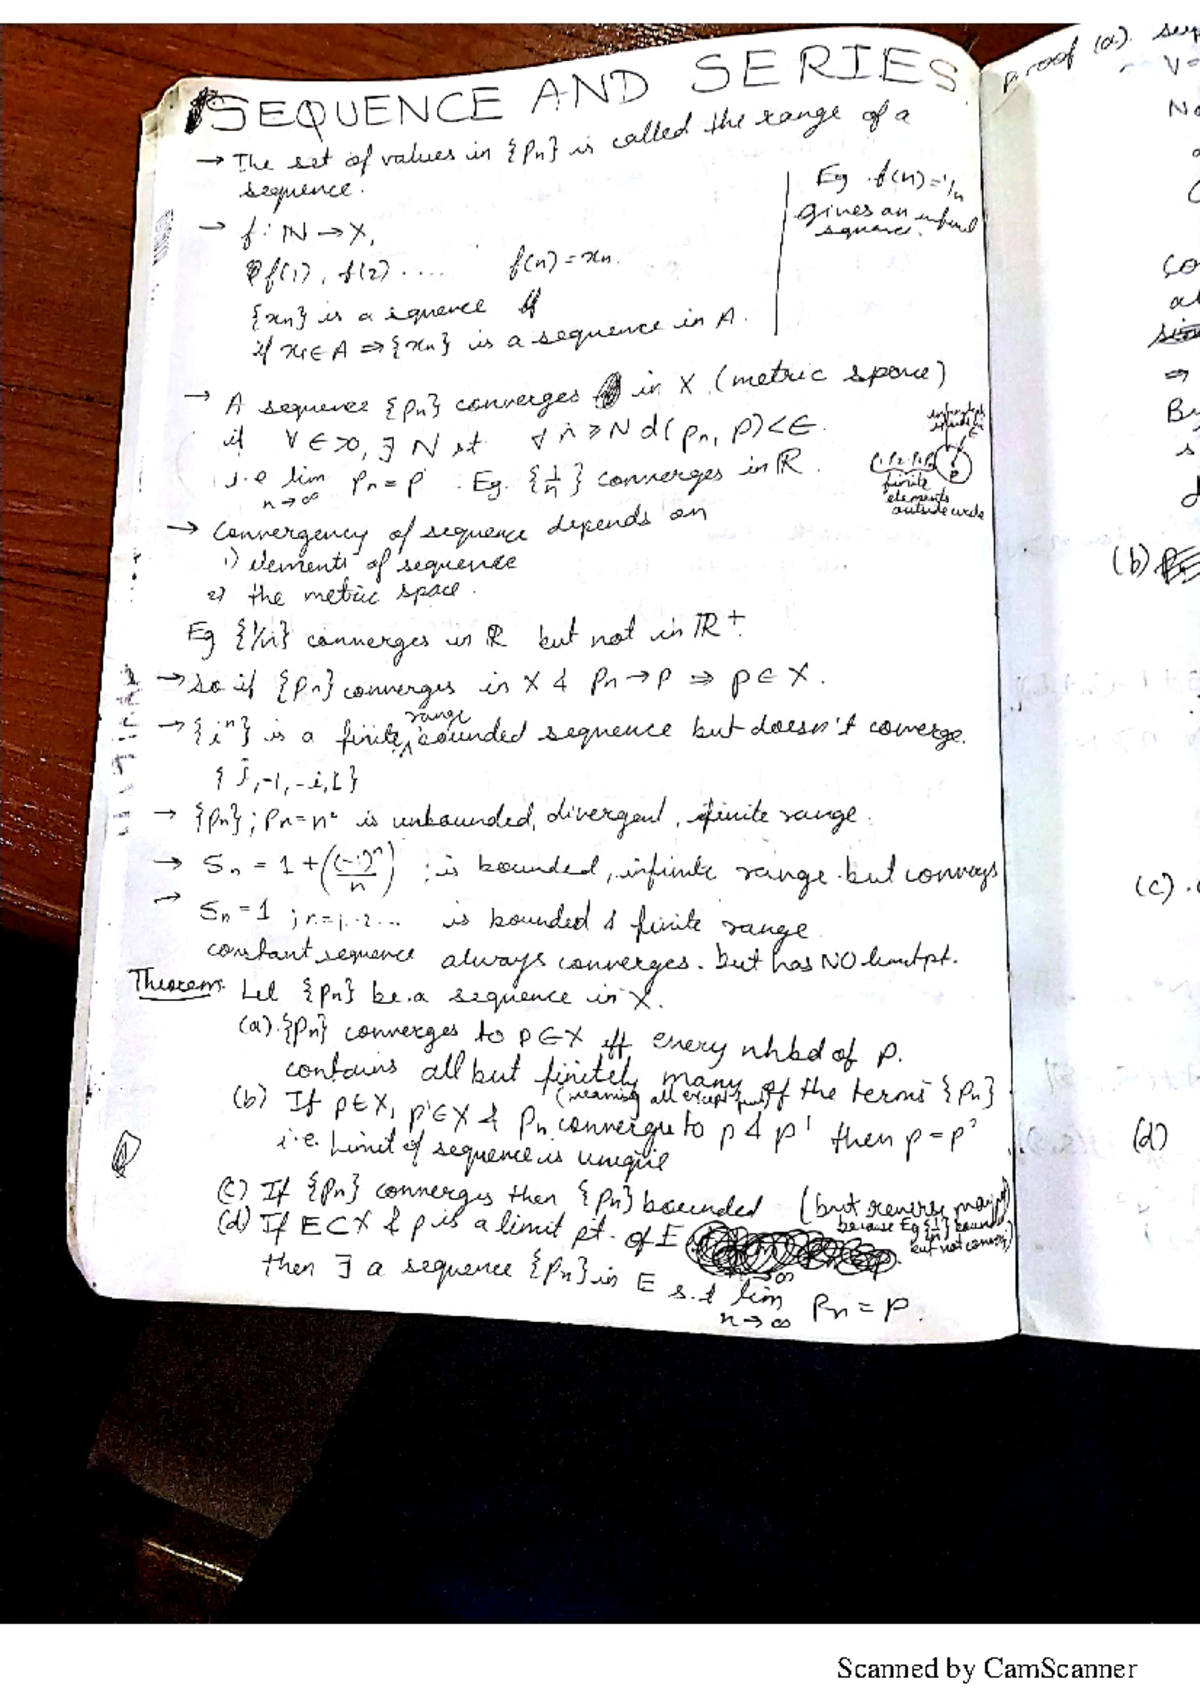 SEQUENCE AND SERIES.
→ The set of values in {pn} is called the range of a
sequence.
Eg. f(n) = 1/n
gives an
→ f: ℕ → X,
f(1), f(2) .... f(n) = xn.
{xn} is a squence if
if xi ∈ A ⇒ {xn} is a sequence in A.
→ A sequence {pn} converges in X (metric space)
if ∀ ε>0, ∃ N st ∀ n ≥ N d(pn, p) < ε.
i.e lim n→∞ pn = p . Eg. {1/n} converges in ℝ.
finite
elements
outside circle
→ Convergency of sequence depends on
1) elements of sequence
2) the metric space.
Eg {1/n} converges in ℝ but not in ℝ+.
→ so if {pn} converges in X & pn → p ⇒ p ∈ X.
→ {iⁿ} is a finite range bounded sequence but doesn't converge.
{i, -1, -i, 1}
→ {pn}; pn = n² is unbounded, divergent, infinite range.
→ Sn = 1 + ((-1)ⁿ/n) ; is bounded, infinite range but convergs
→ Sn = 1 ; n = 1, 2... is bounded & finite range
constant sequence always converges. but has NO limit pt.
Theorem. Let {pn} be a sequence in X.
(a) {pn} converges to p ∈ X iff every nhbd of p.
contains all but finitely many of the terms {pn}
(meaning all except
(b) If p ∈ X, p' ∈ X & pn converge to p & p' then p = p'
i.e. Limit of sequence is unique
(c) If {pn} converges then {pn} bounded (but reverse may not
because Eg bounded
but not
(d) If E ⊂ X & p is a limit pt. of E
then ∃ a sequence {pn} in E s.t lim n→∞ pn = p.
Proof (a).
(b)
(c)
(d)
Scanned by CamScanner